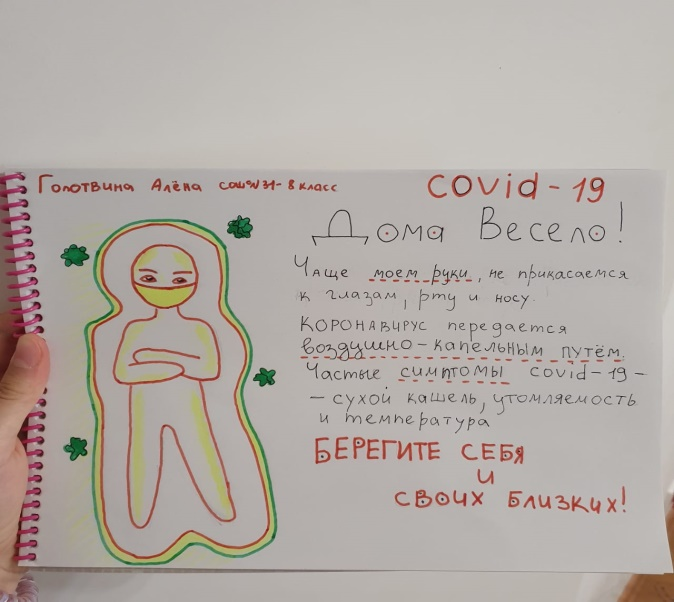 Голотвина Алёна сош№31- 8 класс
covid-19
Дома Весело!
Чаще моем руки, не прикасаемся
к глазам, рту и носу.
Коронавирус передается
воздушно-капельным путём.
Частые симптомы covid-19-
- сухой кашель, утомляемость
и температура
БЕРЕГИТЕ СЕБЯ
И
СВОИХ БЛИЗКИХ!